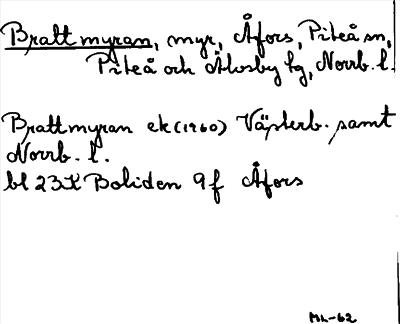 Brattmyran, myr, Åfors, Piteå sn,
Piteå och Älvsby tg, Norrb. l.
Brattmyran ek (1960) Västerb. samt
Norrb. l.
bl 23K Boliden 9f Åfors
ML-62